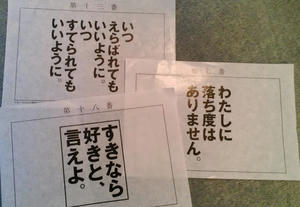 第十三番
いつ
えらばれても
いいように。
いつ
すてられても
いいように。
わたしに
落ち度は
ありません。
第十八番
すきなら
好きと、
言えよ。